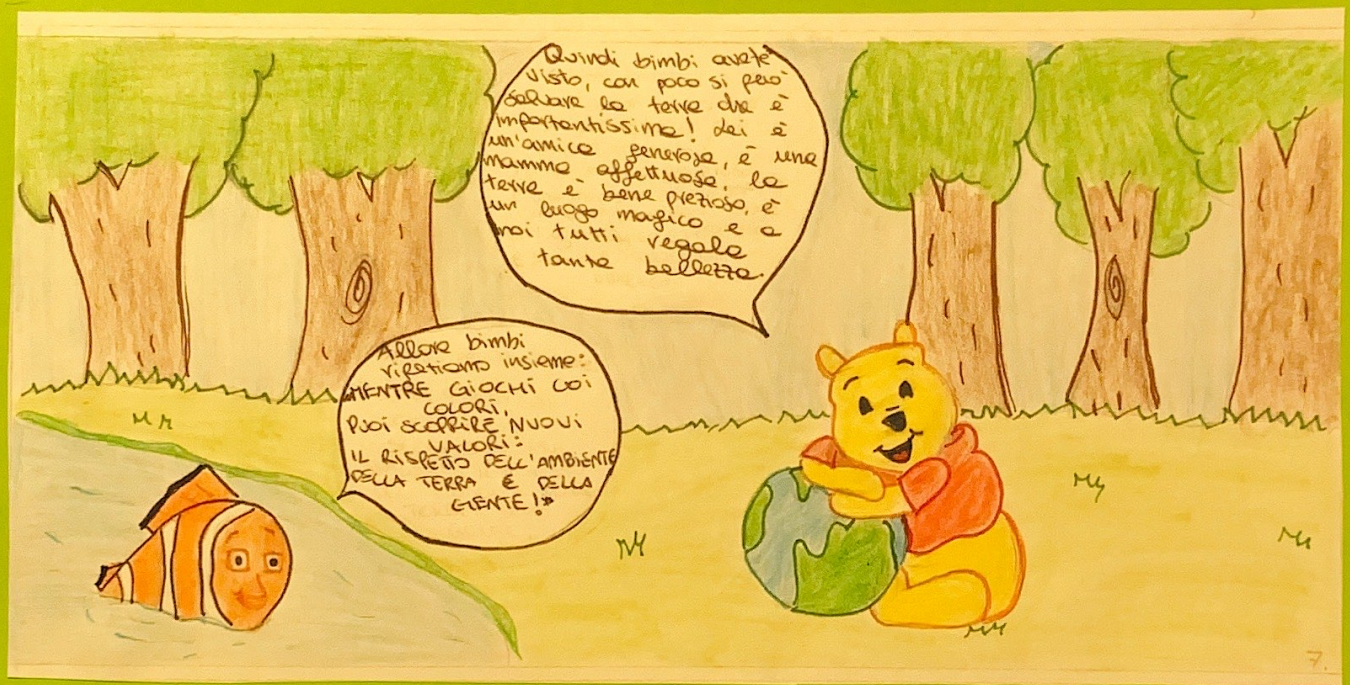 Quindi bimbi avete
visto, con poco si può
salvare la terra che è
importantissima! Lei è
un'amica generosa, è una
mamma affettuosa, la
terra è bene prezioso, è
un luogo magico e a
noi tutti regala
tanta bellezza.
Allora bimbi
ripetiamo insieme:
MENTRE GIOCHI COI
COLORI,
PUOI SCOPRIRE NUOVI
VALORI:
IL RISPETTO DELL'AMBIENTE
DELLA TERRA E DELLA
GENTE!"
7.